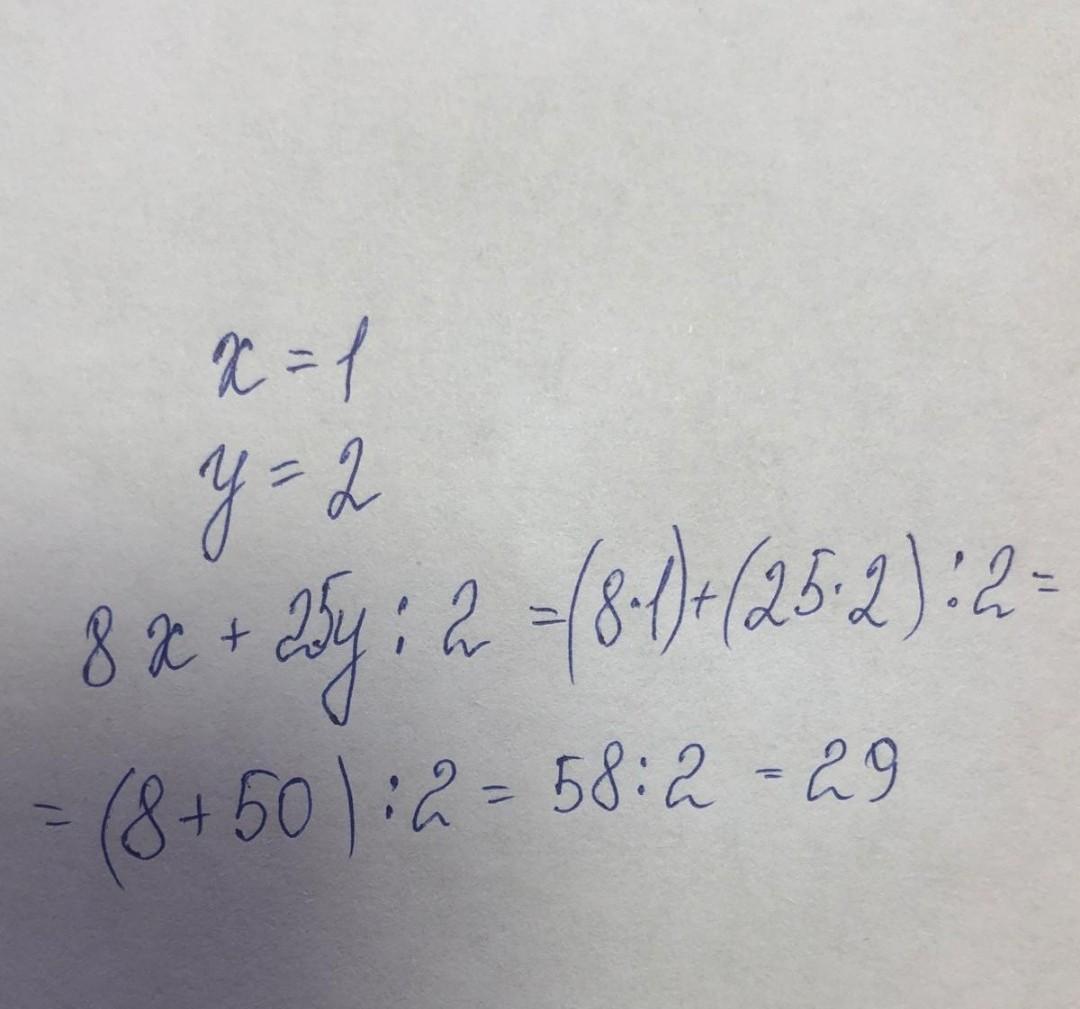 x = 1
y = 2
8x + 25y : 2 = (8·1) + (25·2) : 2 =
= (8 + 50) : 2 = 58 : 2 = 29